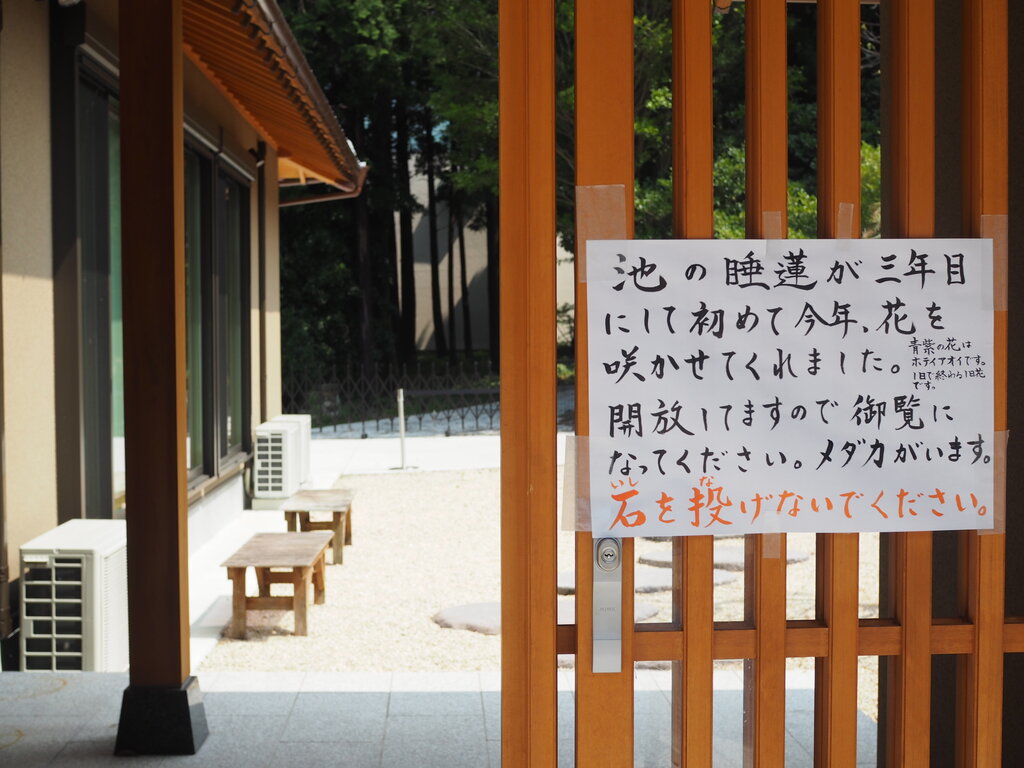 池の睡蓮が三年目
にして初めて今年、花を
咲かせてくれました。
青紫の花は
ホテイアオイです。
1日で終わる1日花
です。
開放してますので御覧に
なってください。メダカがいます。
いし な
石を投げないでください。